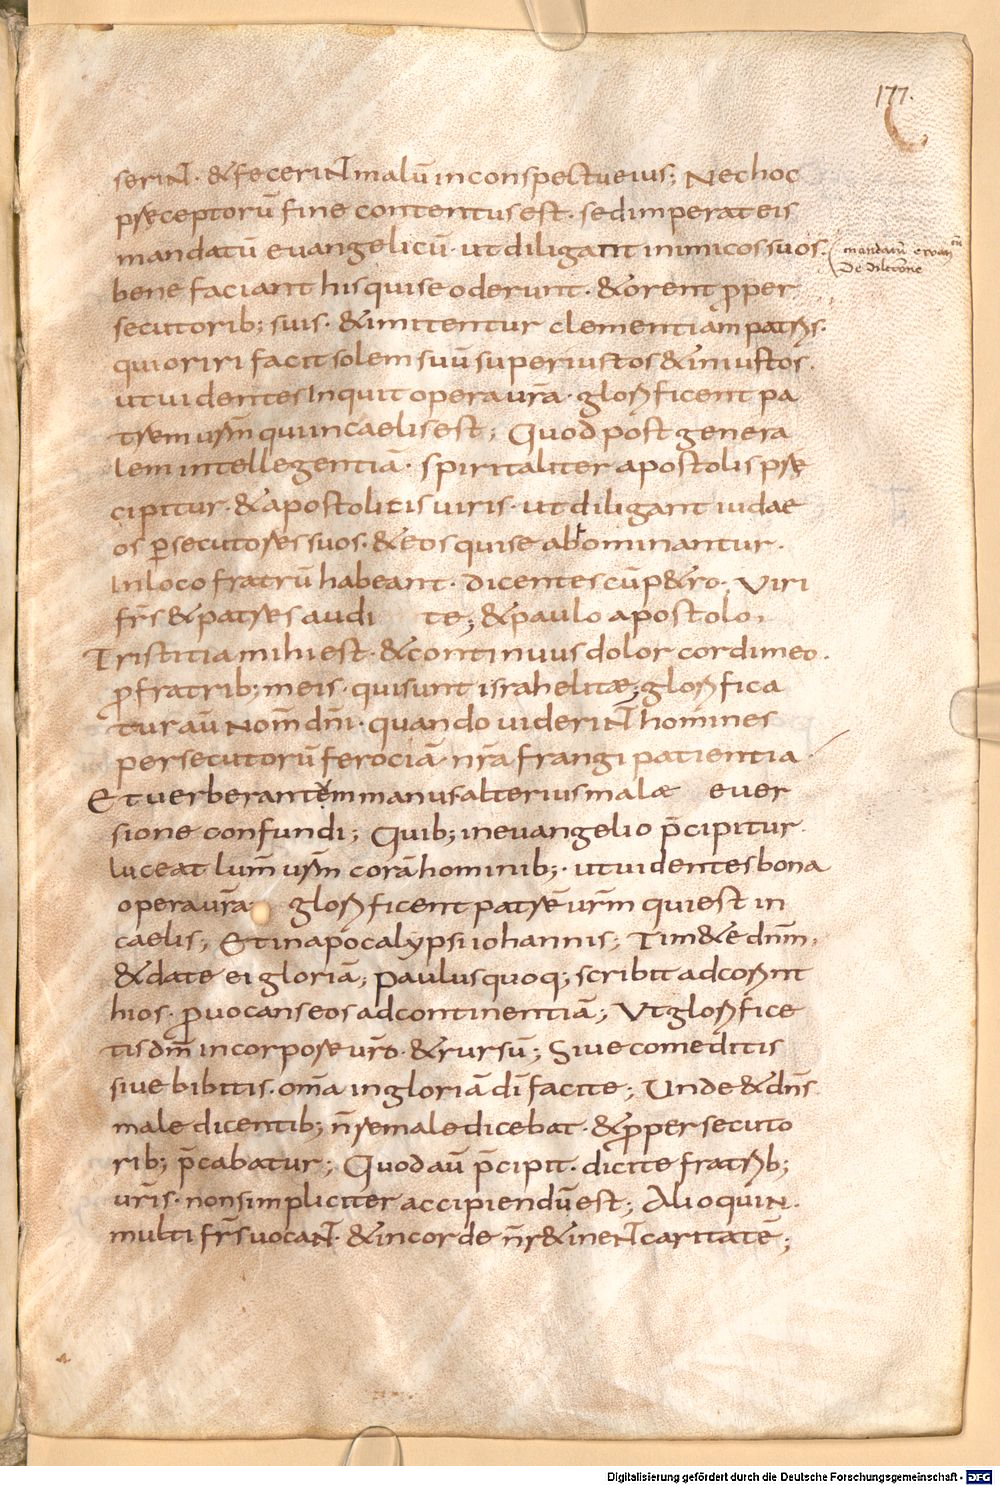 177.
serint. & fecerint malū in conspectu eius; Nec hoc
pręceptorū fine contentus est. sed imperat eis
mandatū euangelicū. ut diligant inimicos suos.
mandatū euan
De dilectione
bene faciant his qui se oderunt. & orent p̱ per
secutorib; suis. & imitentur clementiam patris.
qui oriri facit solem suū super iustos & iniustos.
ut uidentes inquit opera ur̄a. glorificent pa
trem ur̄m qui in caelis est; Quod post genera
lem intellegentiā. spiritaliter apostolis prę
cipitur. & apostolicis uiris. ut diligant iudae
os p̱secutores suos. & eos qui se abominantur.
In loco fratrū habeant. dicentes cū p&ro. Viri
fr̄s & patres audi te; & paulo apostolo.
Tristitia mihi est. & continuus dolor cordi meo.
p̱ fratrib; meis. qui sunt israhelitae; glorifica
tur aū nom̄ dn̄i. quando uiderint homines
persecutorū ferociā. nr̄a frangi patientia.
Et uerberantem manus alterius malae euer
sione confundi; Quib; in euangelio p̄cipitur.
luceat lum̄ ur̄m corā hominib;. ut uidentes bona
opera ur̄a glorificent patrē ur̄m qui est in
caelis; Et in apocalypsi iohannis; Tim&e dn̄m,
& date ei gloriā; Paulus quoq; scribit ad corint
hios. p̱uocans eos ad continentiā; Vt glorifice
tis dm̄ in corpore ur̄o. & rursū; Siue comeditis
siue bibitis. om̄a in gloriā dī facite; Unde & dn̄s
male dicentib; n̄ remaledicebat. & p̱ persecuto
rib; p̄cabatur; Quod aū p̄cipit. dicite fratrib;
ur̄is. non simpliciter accipiendū est; Alioquin.
multi fr̄s uocant. & in corde n̄ r&inent caritatē;
Digitalisierung gefördert durch die Deutsche Forschungsgemeinschaft - DFG